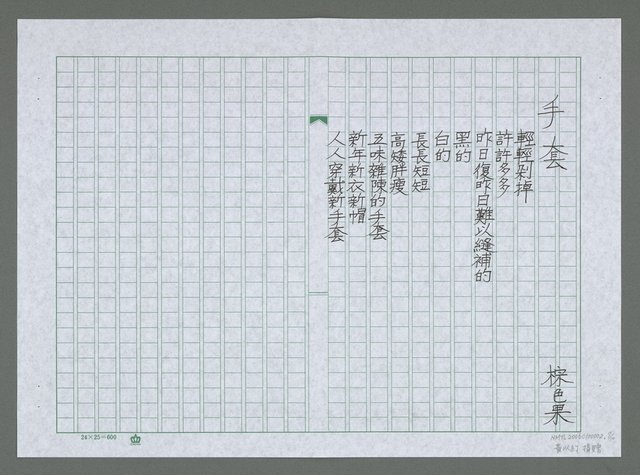 手套
棕色果
輕輕剝掉
許許多多
昨日復昨日難以縫補的
黑的
白的
長長短短
高矮胖瘦
五味雜陳的手套
新年新衣新帽
人人穿戴新手套
24×25=600